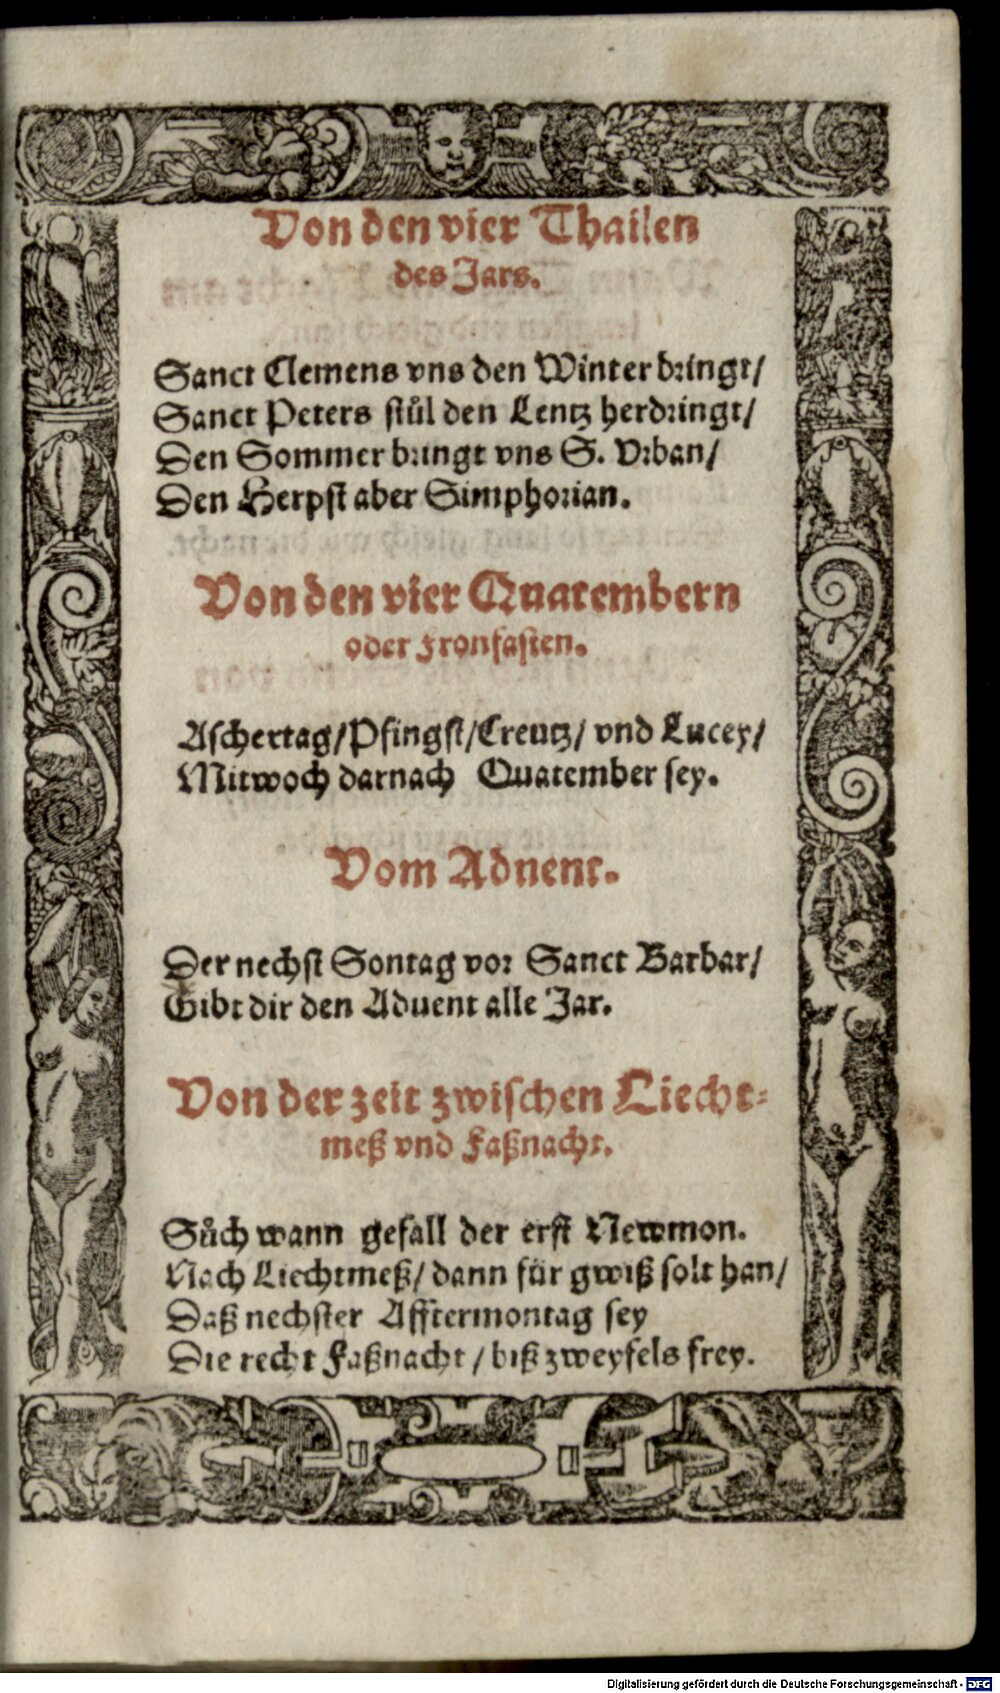 Von den vier Thailen
des Jars.
Sanct Clemens vns den Winter bringt/
Sanct Peters stůl den Lentz herdringt/
Den Sommer bringt vns S. Vrban/
Den Herpst aber Simphorian.
Von den vier Quatembern
oder Fronfasten.
Aschertag/Pfingst/Creutz/ vnd Lucey/
Mitwoch darnach Quatember sey.
Vom Aduent.
Der nechst Sontag vor Sanct Barbar/
Gibt dir den Aduent alle Jar.
Von der zeit zwischen Liecht-
meß vnd Faßnacht.
Sůch wann gefall der erst Newmon.
Nach Liechtmeß/ dann für gwiß solt han/
Daß nechster Afftermontag sey
Die recht Faßnacht / biß zweyfels frey.
Digitalisierung gefördert durch die Deutsche Forschungsgemeinschaft - DFG